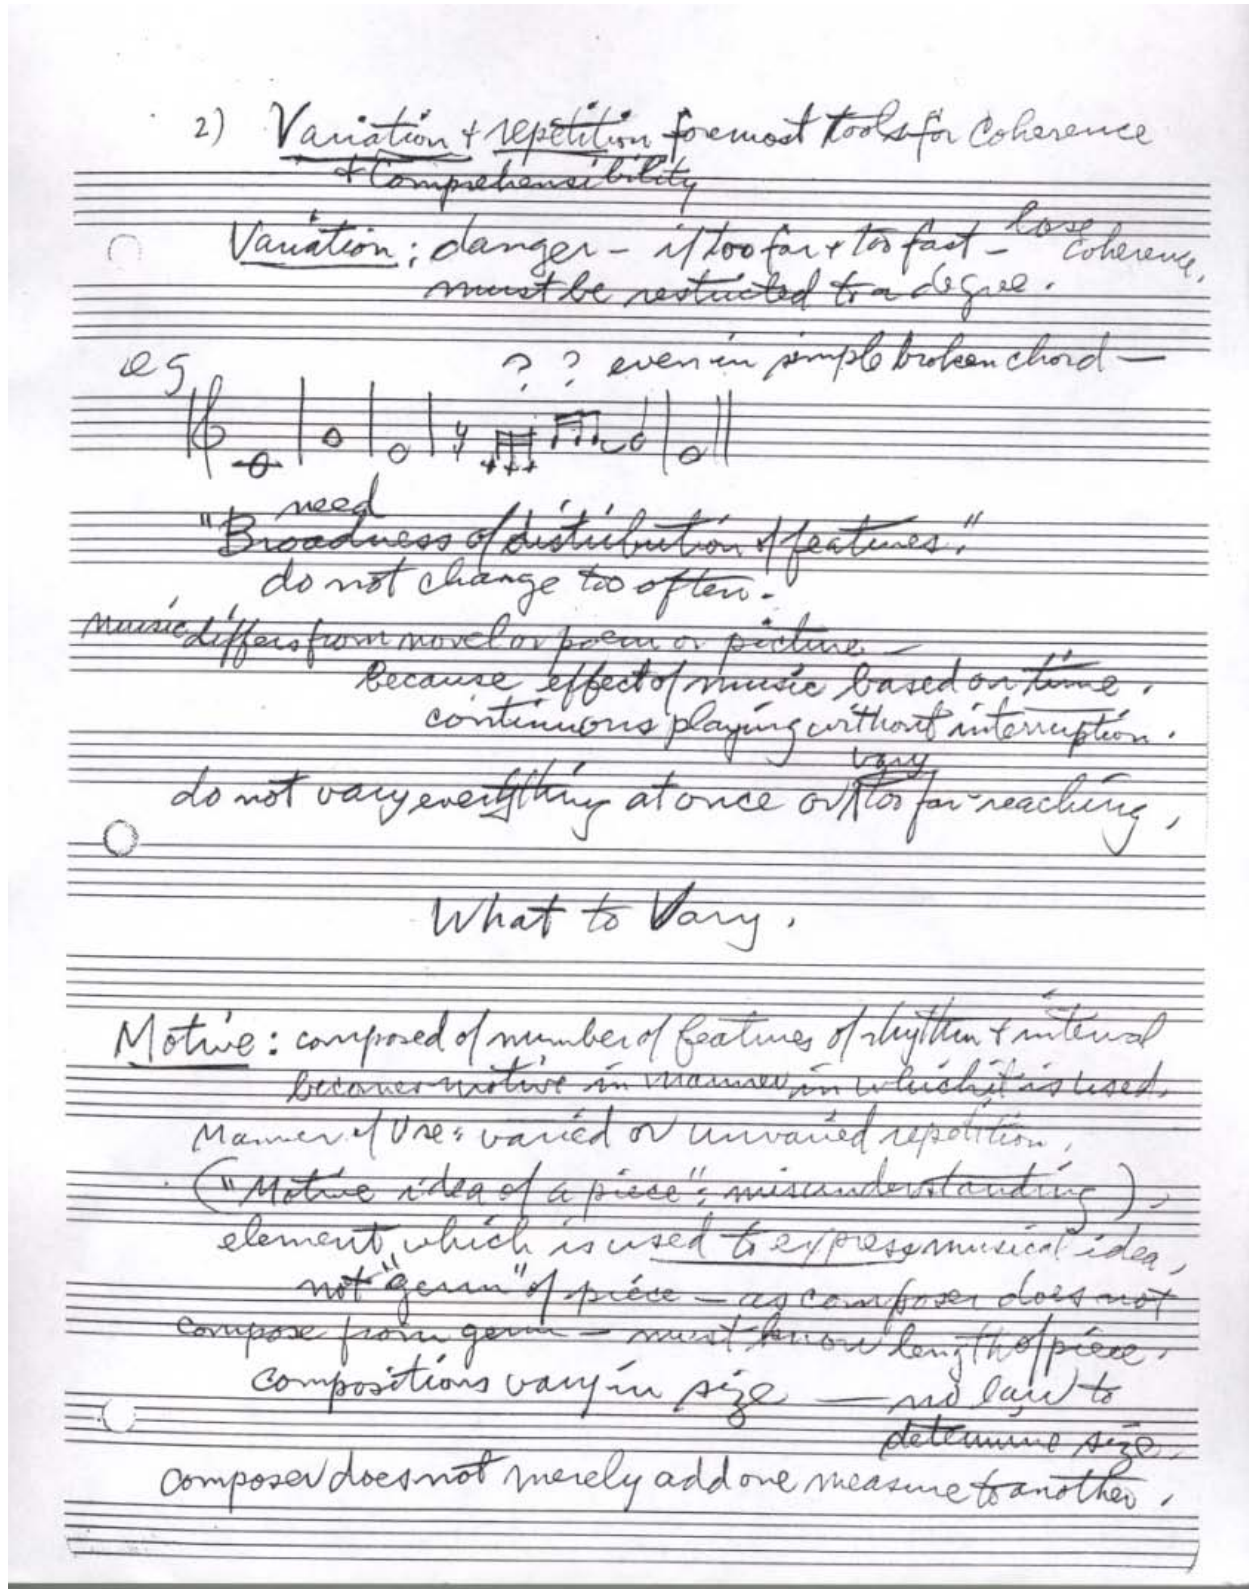 2) Variation + repetition foremost tools for coherence
+ Comprehensibility
Variation: danger - if too far + too fast - lose coherence.
must be restricted to a degree.
eg ? ? even in simple broken chord —
need
"Broadness of distribution of features."
do not change too often.
music differs from novel or poem or picture —
because effect of music based on time.
continuous playing without interruption.
vary
do not vary everything at once or too far-reaching.
What to Vary.
Motive: composed of number of features of rhythm + interval
becomes motive in manner in which it is used.
Manner of Use: varied or unvaried repetition.
("Motive idea of a piece": misunderstanding).
element which is used to express musical idea,
not "germ" of piece — as composer does not
compose from germ — must know length of piece.
compositions vary in size — no law to
determine size.
composer does not merely add one measure to another.